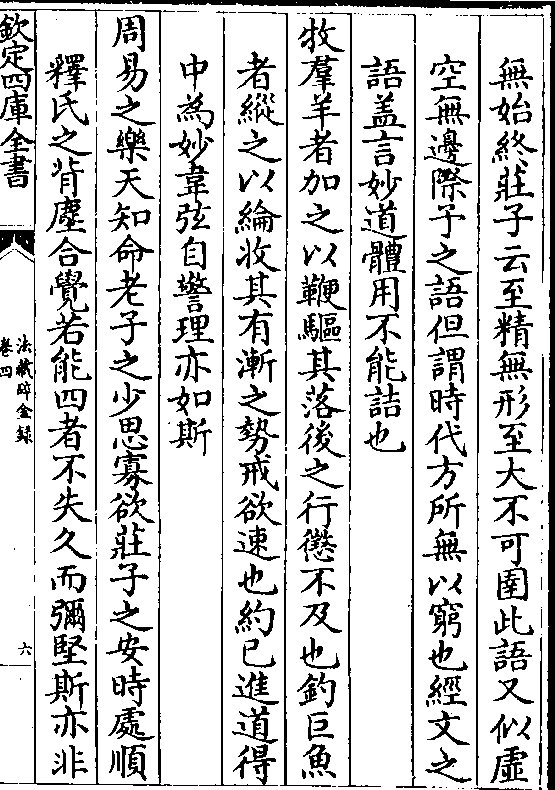 無始終莊子云至精無形至大不可圍此語又似虛
空無邊際予之語但謂時代方所無以窮也經文之
語盖言妙道體用不能詰也
牧羣羊者加之以鞭驅其落後之行懲不及也釣巨魚
者縱之以綸收其有漸之勢戒欲速也約已進道得
中為妙韋弦自警理亦如斯
周易之樂天知命老子之少思寡欲莊子之安時處順
釋氏之背塵合覺若能四者不失久而彌堅斯亦非
欽定四庫全書
法藏碎金録
卷四
六